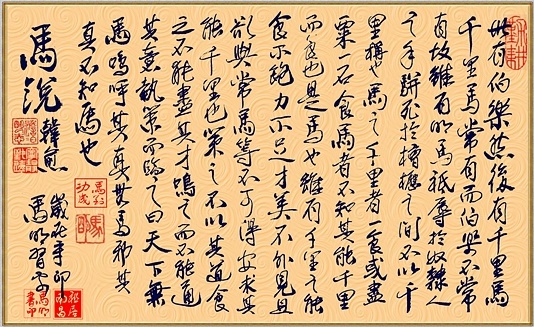 世有伯樂然後有千里馬
千里馬常有而伯樂不常
有故雖有名馬祇辱於奴隸人
之手駢死於槽櫪之間不以千
里稱也馬之千里者一食或盡
粟一石食馬者不知其能千里
而食也是馬也雖有千里之能
食不飽力不足才美不外見且
欲與常馬等不可得安求其
能千里也策之不以其道食
之不能盡其才鳴之而不能通
其意執策而臨之曰天下無
馬嗚呼其真無馬邪其
真不知馬也
馬說
韓愈
歲在辛卯
馬到功成